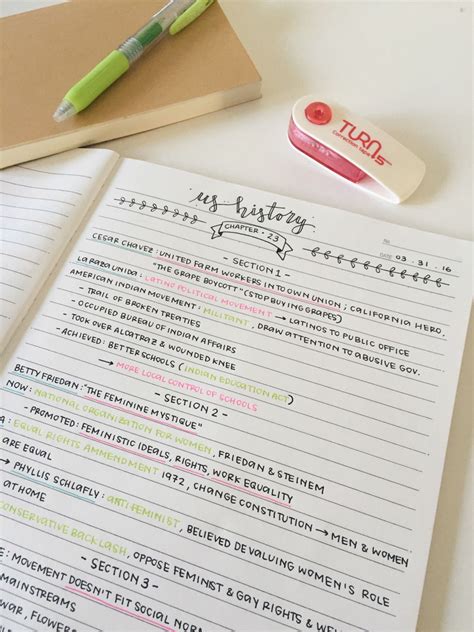 TURNS
Correction Tape
us history
CHAPTER • 23
NO.
DATE 03 . 31 . 16
- SECTION 1 -
CESAR CHAVEZ : UNITED FARM WORKERS INTO OWN UNION ; CALIFORNIA HERO.
"THE GRAPE BOYCOTT" (STOP BUYING GRAPES)
LA RAZA UNIDA : LATINO POLITICAL MOVEMENT → LATINOS TO PUBLIC OFFICE
AMERICAN INDIAN MOVEMENT : MILITANT, DRAW ATTENTION TO ABUSIVE GOV.
- TRAIL OF BROKEN TREATIES
- OCCUPIED BUREAU OF INDIAN AFFAIRS
- TOOK OVER ALCATRAZ & WOUNDED KNEE
- ACHIEVED : BETTER SCHOOLS ( INDIAN EDUCATION ACT)
→ MORE LOCAL CONTROL OF SCHOOLS
- SECTION 2 -
BETTY FRIEDAN : "THE FEMININE MYSTIQUE"
NOW : NATIONAL ORGANIZATION FOR WOMEN, FRIEDAN & STEINEM
- PROMOTED : FEMINISTIC IDEALS, RIGHTS, WORK EQUALITY
A : EQUAL RIGHTS AMMENDMENT 1972, CHANGE CONSTITUTION → MEN & WOMEN
ARE EQUAL
→ PHYLLIS SCHLAFLY : ANTI-FEMINIST, BELIEVED DEVALUING WOMEN'S ROLE
AT HOME
CONSERVATIVE BACKLASH, OPPOSE FEMINIST & GAY RIGHTS &
- SECTION 3 -
: MOVEMENT DOESN'T FIT SOCIAL
MAINSTREAMS
WAR, FLOWERS